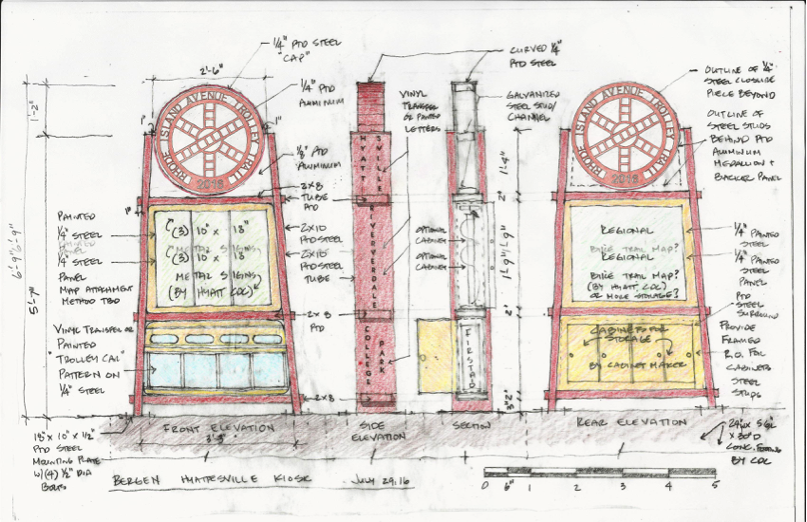 1/4" PTD STEEL
"CAP"
2'-6"
1/4" PTD
ALUMINUM
1'-2"
1"
1"
RHODE ISLAND AVENUE TROLLEY TRAIL
2018
1/8" PTD
ALUMINUM
2x8
TUBE
PTD
1"
PAINTED
1/4" STEEL
1/4" STEEL
PANEL
MAP ATTACHMENT
METHOD TBD
(3) 10" x 18"
(3) 10" x 18"
METAL SIGNS
(BY HYATT CDC)
2x10
PTD STEEL
TUBE
2x8
PTD
6'-9"
5'-7"
VINYL TRANSFER OR
PAINTED
TROLLEY CAR
PATTERN ON
1/4" STEEL
2x8
FRONT ELEVATION
3'-3"
18" x 10" x 1/2"
PTD STEEL
MOUNTING PLATE
W/(4) 1/2" DIA
BOLTS
CURVED 1/4"
PTD STEEL
VINYL
TRANSFER
OR PAINTED
LETTERS
GALVANIZED
STEEL STUD/
CHANNEL
HYATTSVILLE
RIVERDALE
COLLEGE
PARK
SIDE
ELEVATION
OPTIONAL
CABINET
OPTIONAL
CABINET
FIRST AID
SECTION
1'-4"
2"
1'-9"
2"
3"
2"
OUTLINE OF 1/4"
STEEL CLOSURE
PIECE BEYOND
OUTLINE OF
STEEL STUDS
BEHIND PTD
ALUMINUM
MEDALLION +
BACKER PANEL
RHODE ISLAND AVENUE TROLLEY TRAIL
2018
REGIONAL
REGIONAL
BIKE TRAIL MAP?
(BY HYATT CDC)
OR MORE STORAGE?
1/4" PAINTED
STEEL
1/4" PAINTED
STEEL
PANEL
PTD
STEEL
SURROUND
CABINETS FOR
STORAGE
BY CABINET MAKER
PROVIDE
FRAMED
R.O. FOR
CABINETS
STEEL
STUDS
REAR ELEVATION
CONC. FOOTING
BY CDC
BERGEN HYATTSVILLE KIOSK JULY 29, 16
0 6" 1 2 3 4 5